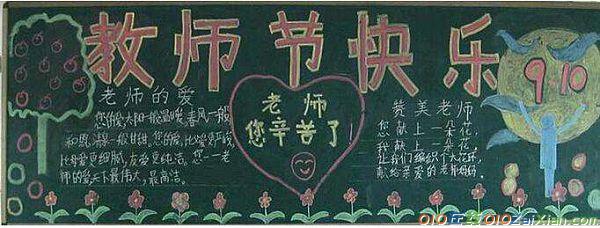 教师节快乐
9 10
老师的爱
您的爱太阳一般温暖,春风一般
和煦,清泉一般甘甜。您的爱,比父爱更严峻,
比母爱更细腻,友爱更纯洁。您一老
师的爱天下最伟大,最高洁。
老师
您辛苦了!
赞美老师
您献上一朵花,
我献上一朵花,
让我们编织个大花环,
献给亲爱的老师妈妈。
010在线010ZaiXian.com